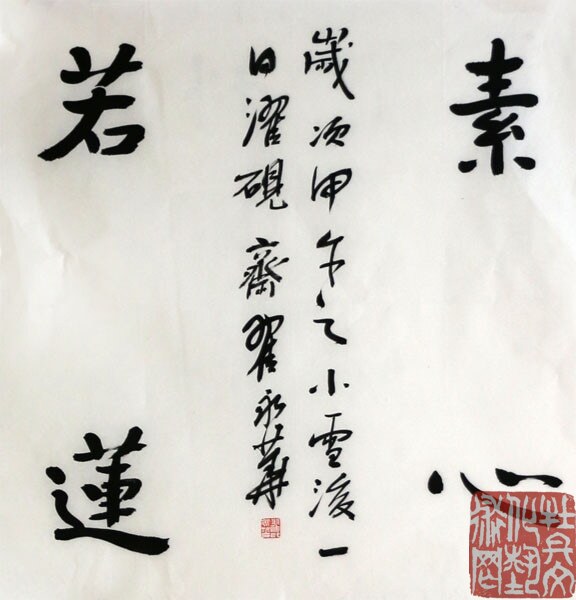 素心
若蓮
歲次甲午之小雪後一
日濯硯齋翟永華